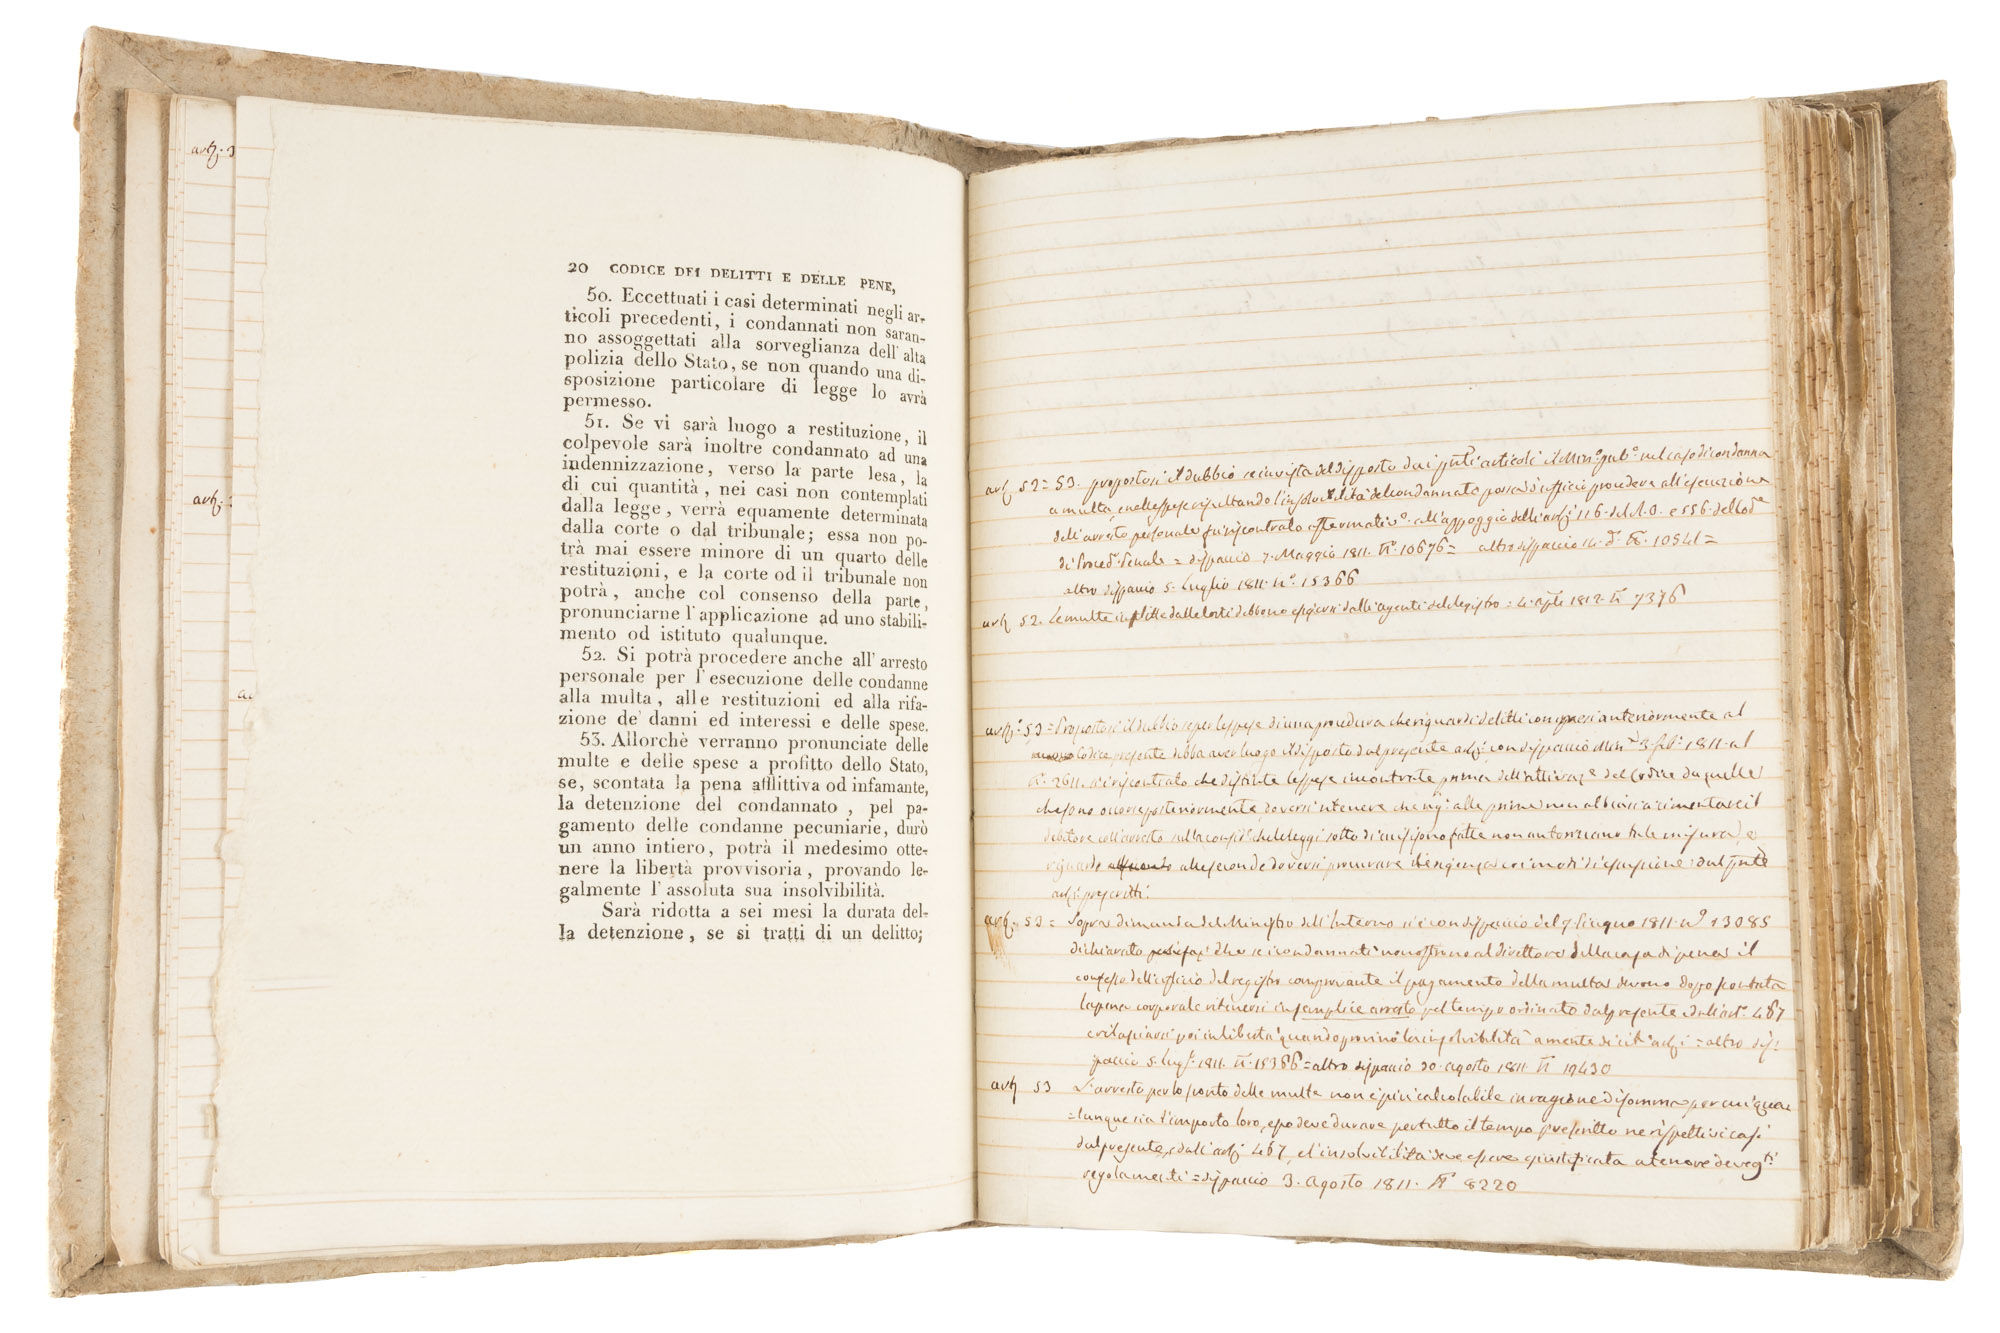 art. 3
art.
20 CODICE DEI DELITTI E DELLE PENE,
50. Eccettuati i casi determinati negli ar-
ticoli precedenti, i condannati non saran-
no assoggettati alla sorveglianza dell'alta
polizia dello Stato, se non quando una di-
sposizione particolare di legge lo avrà
permesso.
51. Se vi sarà luogo a restituzione, il
colpevole sarà inoltre condannato ad una
indennizzazione, verso la parte lesa, la
di cui quantità, nei casi non contemplati
dalla legge, verrà equamente determinata
dalla corte o dal tribunale; essa non po-
trà mai essere minore di un quarto delle
restituzioni, e la corte od il tribunale non
potrà, anche col consenso della parte,
pronunciarne l'applicazione ad uno stabili-
mento od istituto qualunque.
52. Si potrà procedere anche all'arresto
personale per l'esecuzione delle condanne
alla multa, alle restituzioni ed alla rifa-
zione de' danni ed interessi e delle spese.
53. Allorchè verranno pronunciate delle
multe e delle spese a profitto dello Stato,
se, scontata la pena afflittiva od infamante,
la detenzione del condannato, pel pa-
gamento delle condanne pecuniarie, durò
un anno intiero, potrà il medesimo otte-
nere la libertà provvisoria, provando le-
galmente l'assoluta sua insolvibilità.
Sarà ridotta a sei mesi la durata del-
la detenzione, se si tratti di un delitto;
art 52 = 53. propostosi il dubbio se in vista del disposto dai pnti articoli il Min.o pub.o nel caso di condanna
a multa, e nelle spese risultando l'insolvibilità del condannato possa d'ufficio procedere all'esecuzione
dell'arresto personale fu riscontrato affermativo all'appoggio delli art 116 del e 556 dello
di Proced. Penale = dispaccio 7. Maggio 1811. N. 10676 = altro dispaccio 14 d. N. 10541 =
altro dispaccio 5. Luglio 1811. n.o 15366
art 52. Le multe inflitte dalle Corti debbono esigersi dalli agenti del Registro = 4. aple 1812. N 7376
art. 53 = Propostosi il dubbio se per le spese di una procedura che riguardi delitti commessi anteriormente al
Codice presente debba aver luogo il disposto dal presente art. con dispaccio Min. 3 feb. 1811. al
N. 2611. si è riscontrato che distinte le spese incontrate prima dell'attivaz.e del Codice da quelle
che sono occorse posteriormente, doversi ritenere che rig. alle prime non abbiasi a cimentare il
debitore coll'arresto sulla che le leggi sotto di cui si sono fatte non autorizzano tale misura, e
riguardo alle seconde doversi procurare l'esigenza coi modi di esecuzione dal pnte
art. prescritti.
art. 53 = Sopra dimanda del Ministro dell'Interno si è con dispaccio del 7. Giugno 1811. n.o 13085
dichiarato che se i condannati non offrono al direttore della casa di pena il
confesso dell'ufficio del registro comprovante il pagamento della multa devono dopo scontata
la pena corporale ritenersi in semplice arresto pel tempo ordinato dal presente e dall'art. 467
e rilasciarsi poi in libertà quando provino la insolvibilità a mente di cit. art. = altro dis-
paccio 5. Lug. 1811. N. 15366 = altro dispaccio 20. agosto 1811. N 19430
art 53 L'arresto per lo sconto delle multe non è più calcolabile in ragione di somma per cui qua-
=lunque sia l'importo loro, esso deve durare per tutto il tempo prescritto ne rispettivi casi
dal presente, e dall'art. 467, e l'insolvibilità deve essere giustificata a tenore de veg.ti
regolamenti = dispaccio 3. agosto 1811. N.o 8220